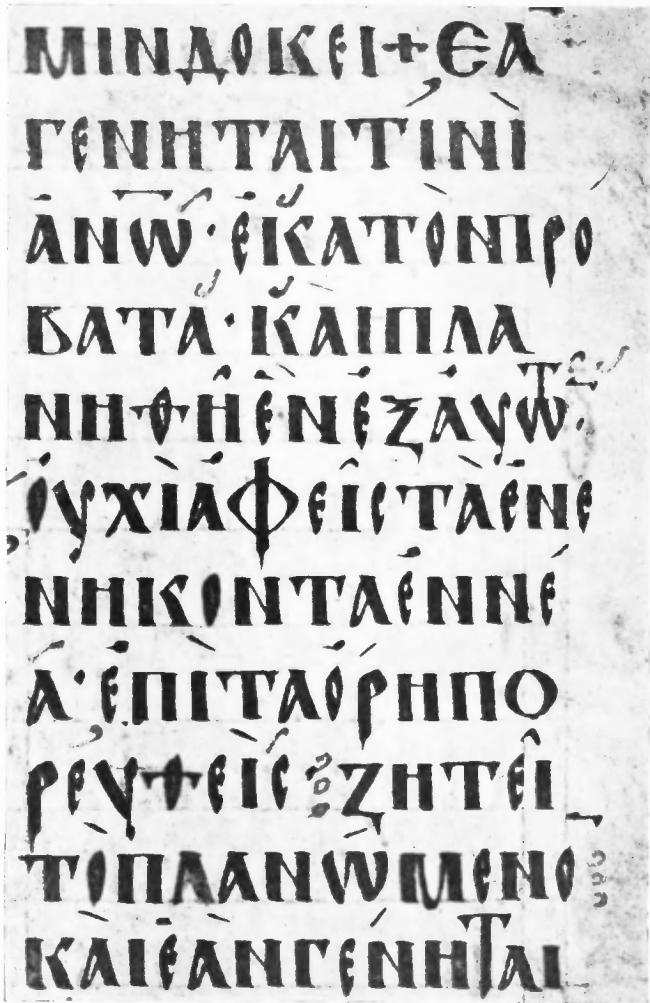 ΜΙΝΔΟΚΕΙ+ΕΑ
ΓΕΝΗΤΑΙΤΙΝΙ
ΑΝ̅Ω̅·ΕΚΑΤΟΝΠΡΟ
ΒΑΤΑ·ΚΑΙΠΛΑ
ΝΗΘΗΕΝΕΞΑΥΤΩ·
ΟΥΧΙΑΦΕΙϹΤΑΕΝΕ
ΝΗΚΟΝΤΑΕΝΝΕ
Α·ΕΠΙΤΑΟΡΗΠΟ
ΡΕΥΘΕΙϹ⁝ΖΗΤΕΙ
ΤΟΠΛΑΝΩΜΕΝΟ̅⁝
ΚΑΙΕΑΝΓΕΝΗΤΑΙ